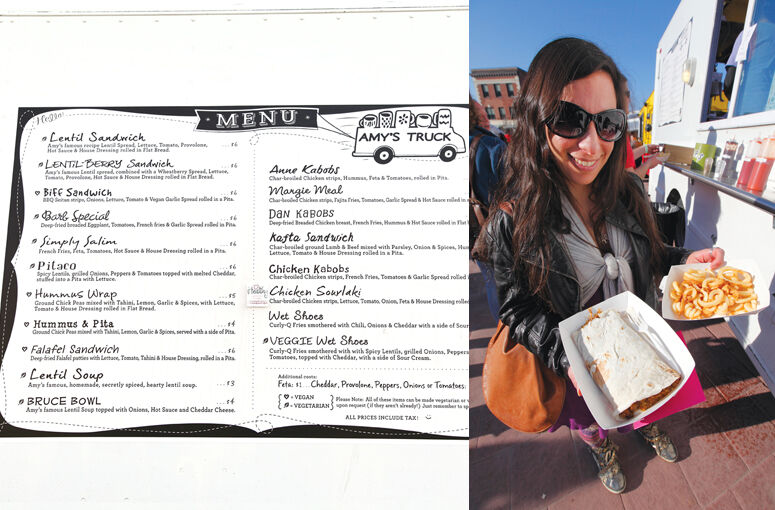 Vegan
MENU
AMY'S TRUCK
Lentil Sandwich ... $6
Amy's famous recipe Lentil Spread, Lettuce, Tomato, Provolone,
Hot Sauce & House Dressing rolled in Flat Bread.
LENTIL-BERRY Sandwich ... $6
Amy's famous Lentil spread, combined with a Wheatberry Spread, Lettuce,
Tomato, Provolone, Hot Sauce & House Dressing rolled in Flat Bread.
Biff Sandwich ... $6
BBQ Seitan Strips, Onions, Lettuce, Tomato & Vegan Garlic Spread rolled in a Pita.
Barb Special ... $6
Deep-fried breaded Eggplant, Tomatoes, French fries & Garlic Spread rolled in a Pita.
Simply Salim ... $6
French Fries, Feta, Tomatoes, Hot Sauce & House Dressing rolled in a Pita.
Pitaco ... $6
Spicy Lentils, grilled Onions, Peppers & Tomatoes topped with melted Cheddar,
stuffed into a Pita with Lettuce.
Hummus Wrap ... $5
Ground Chick Peas mixed with Tahini, Lemon, Garlic & Spices, with Lettuce,
Tomato & House Dressing rolled in a Pita.
Hummus & Pita ... $4
Ground Chick Peas mixed with Tahini, Lemon, Garlic & Spices, served with a side of Pita.
Falafel Sandwich ... $6
Deep-fried Falafel patties with Lettuce, Tomato, Tahini & House Dressing, rolled in a Pita.
Lentil Soup ... $3
Amy's famous, homemade, secretly spiced, hearty lentil soup.
BRUCE BOWL ... $4
Amy's famous Lentil Soup topped with Onions, Hot Sauce and Cheddar Cheese.
Anne Kabobs
Char-broiled Chicken strips, Hummus, Feta & Tomatoes, rolled in Pita.
Margie Meal
Char-broiled Chicken strips, Fajita Fries, Tomatoes, Garlic Spread & Hot Sauce rolled in a
DAN KABOBS
Deep-fried Breaded Chicken breast, French Fries, Hummus & Hot Sauce rolled in Flat
Kafta Sandwich
Char-broiled ground Lamb & Beef mixed with Parsley, Onion & Spices,
Chicken Kabobs
Char-broiled Chicken strips, French Fries, Tomatoes & Garlic Spread rolled
Chicken Souvlaki
Char-broiled Chicken strips, Lettuce, Tomato, Onion, Feta & House Dressing rolled
Wet Shoes
Curly-Q Fries smothered with Chili, Onions & Cheddar with a side of Sour
VEGGIE Wet Shoes
Curly-Q Fries smothered with with Spicy Lentils, grilled Onions, Peppers
Tomatoes, topped with Cheddar, with a side of Sour Cream.
Additional costs:
Feta: $1 ... Cheddar, Provolone, Peppers, Onions or Tomatoes:
= VEGAN
= VEGETARIAN
Please Note: All of these items can be made vegetarian or
upon request (if they aren't already!) Just remember to
ALL PRICES INCLUDE TAX!